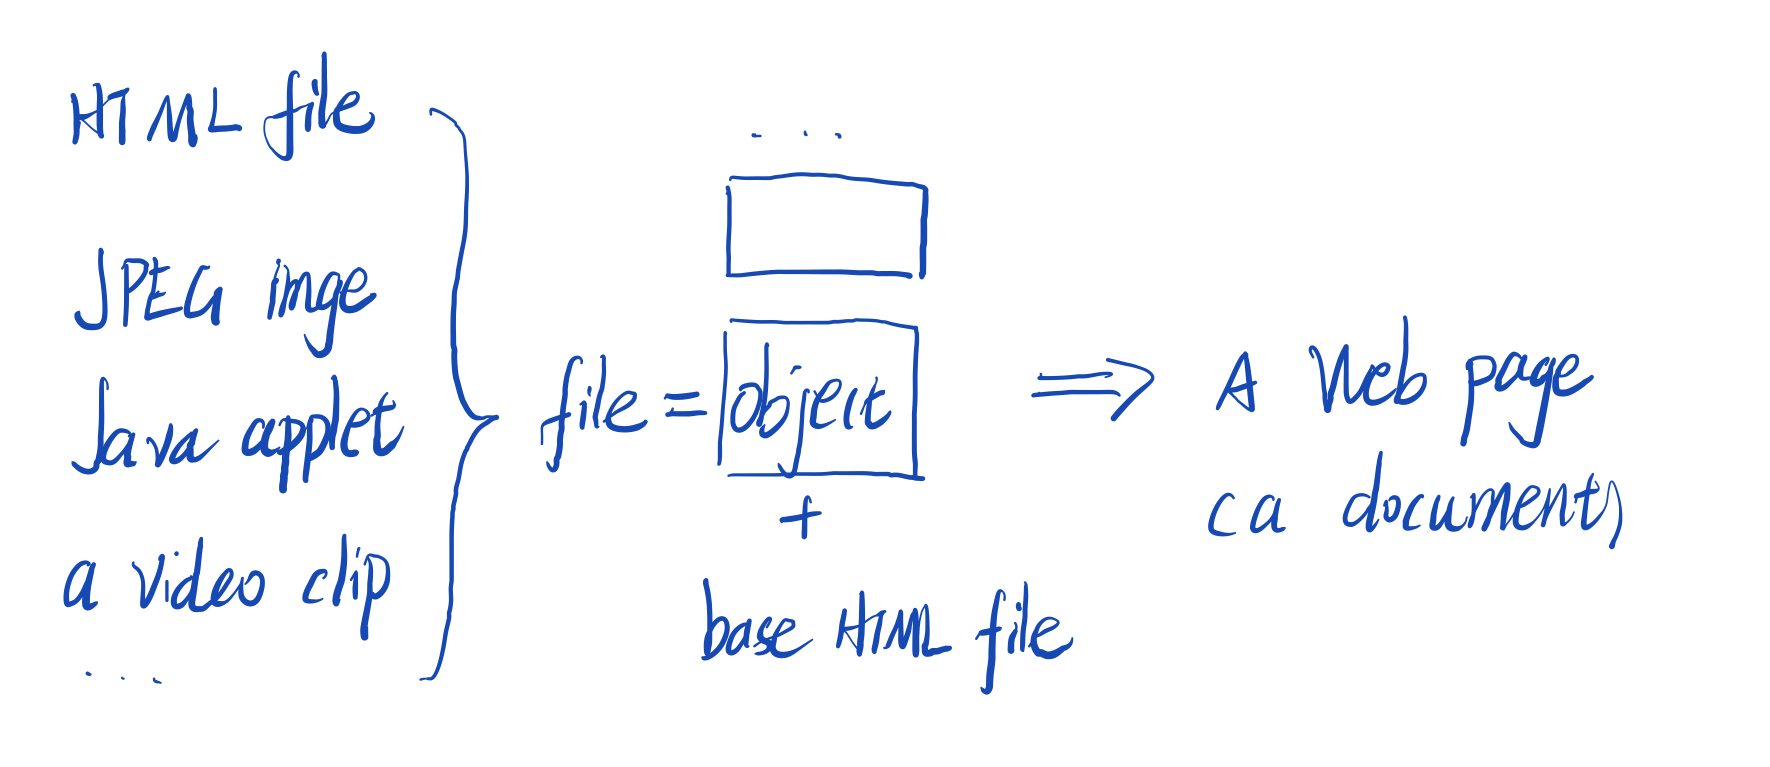 HTML file
JPEG imge
Java applet
a video clip
...
...
file = object
+
base HTML file
⇒ A Web page
(a document)